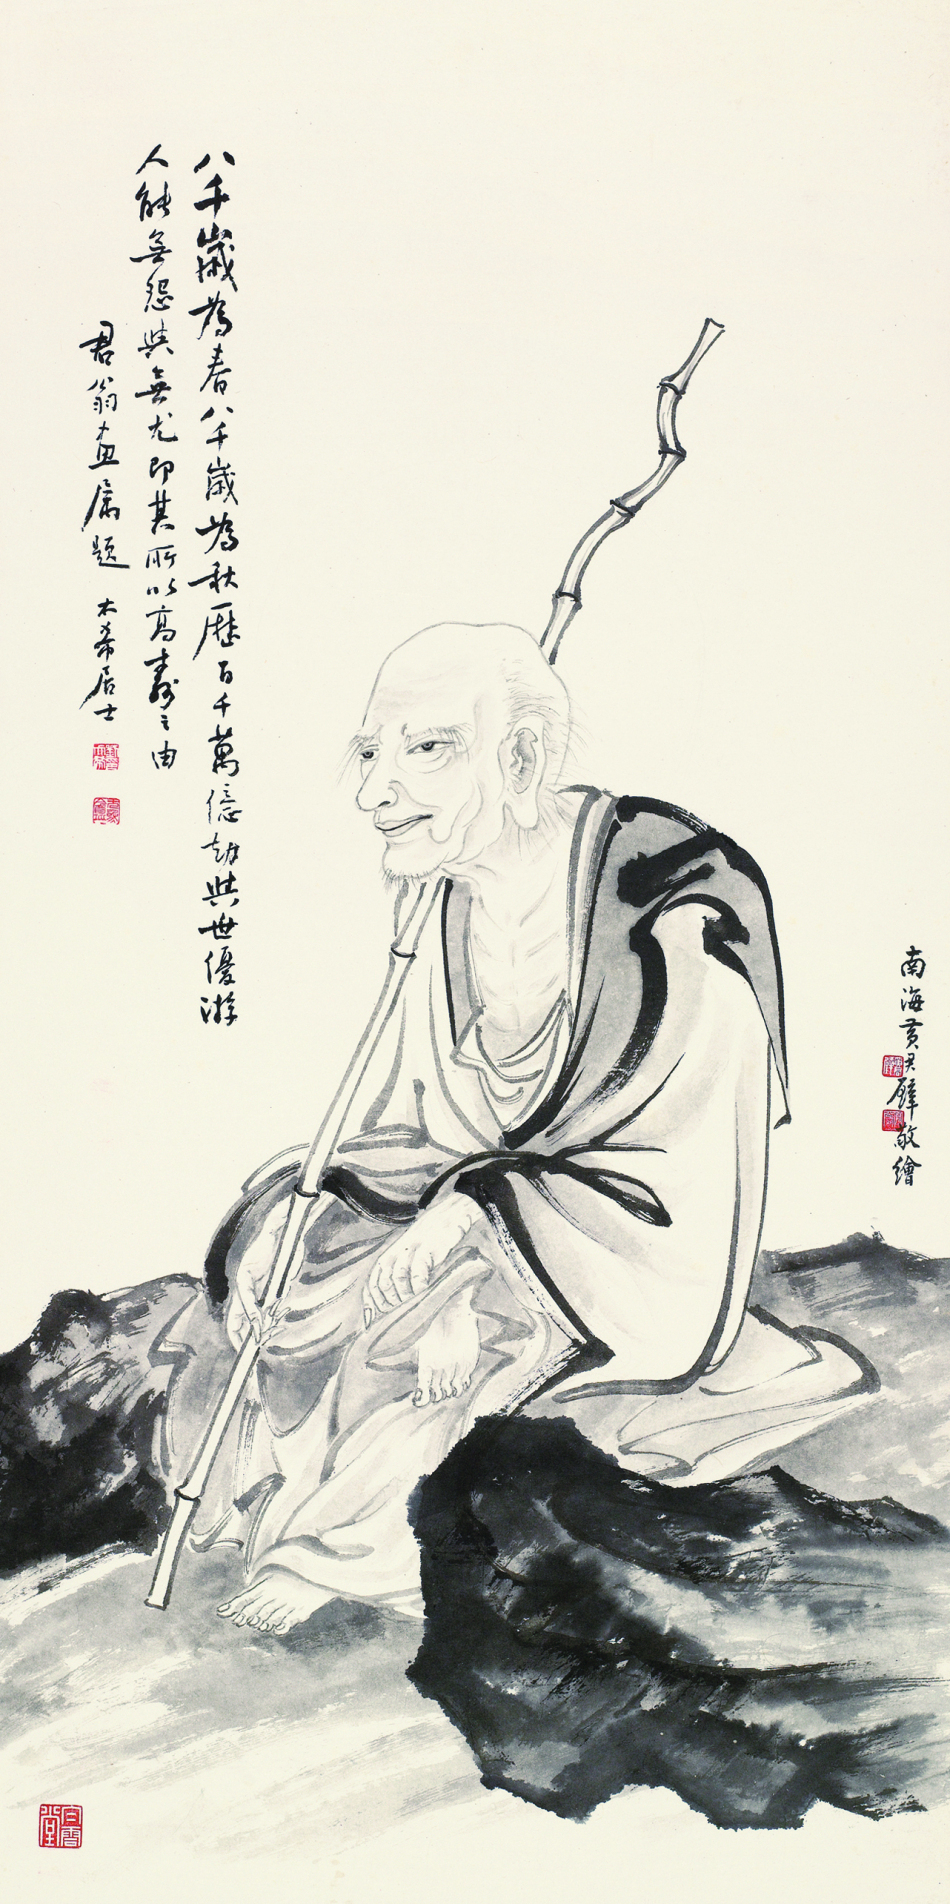 八千歲為春八千歲為秋歷百千萬億劫與世優游
人能無怨與無尤即其所以高壽之由
君翁畫屬題 木希居士
南海黃君璧敬繪
白雲堂